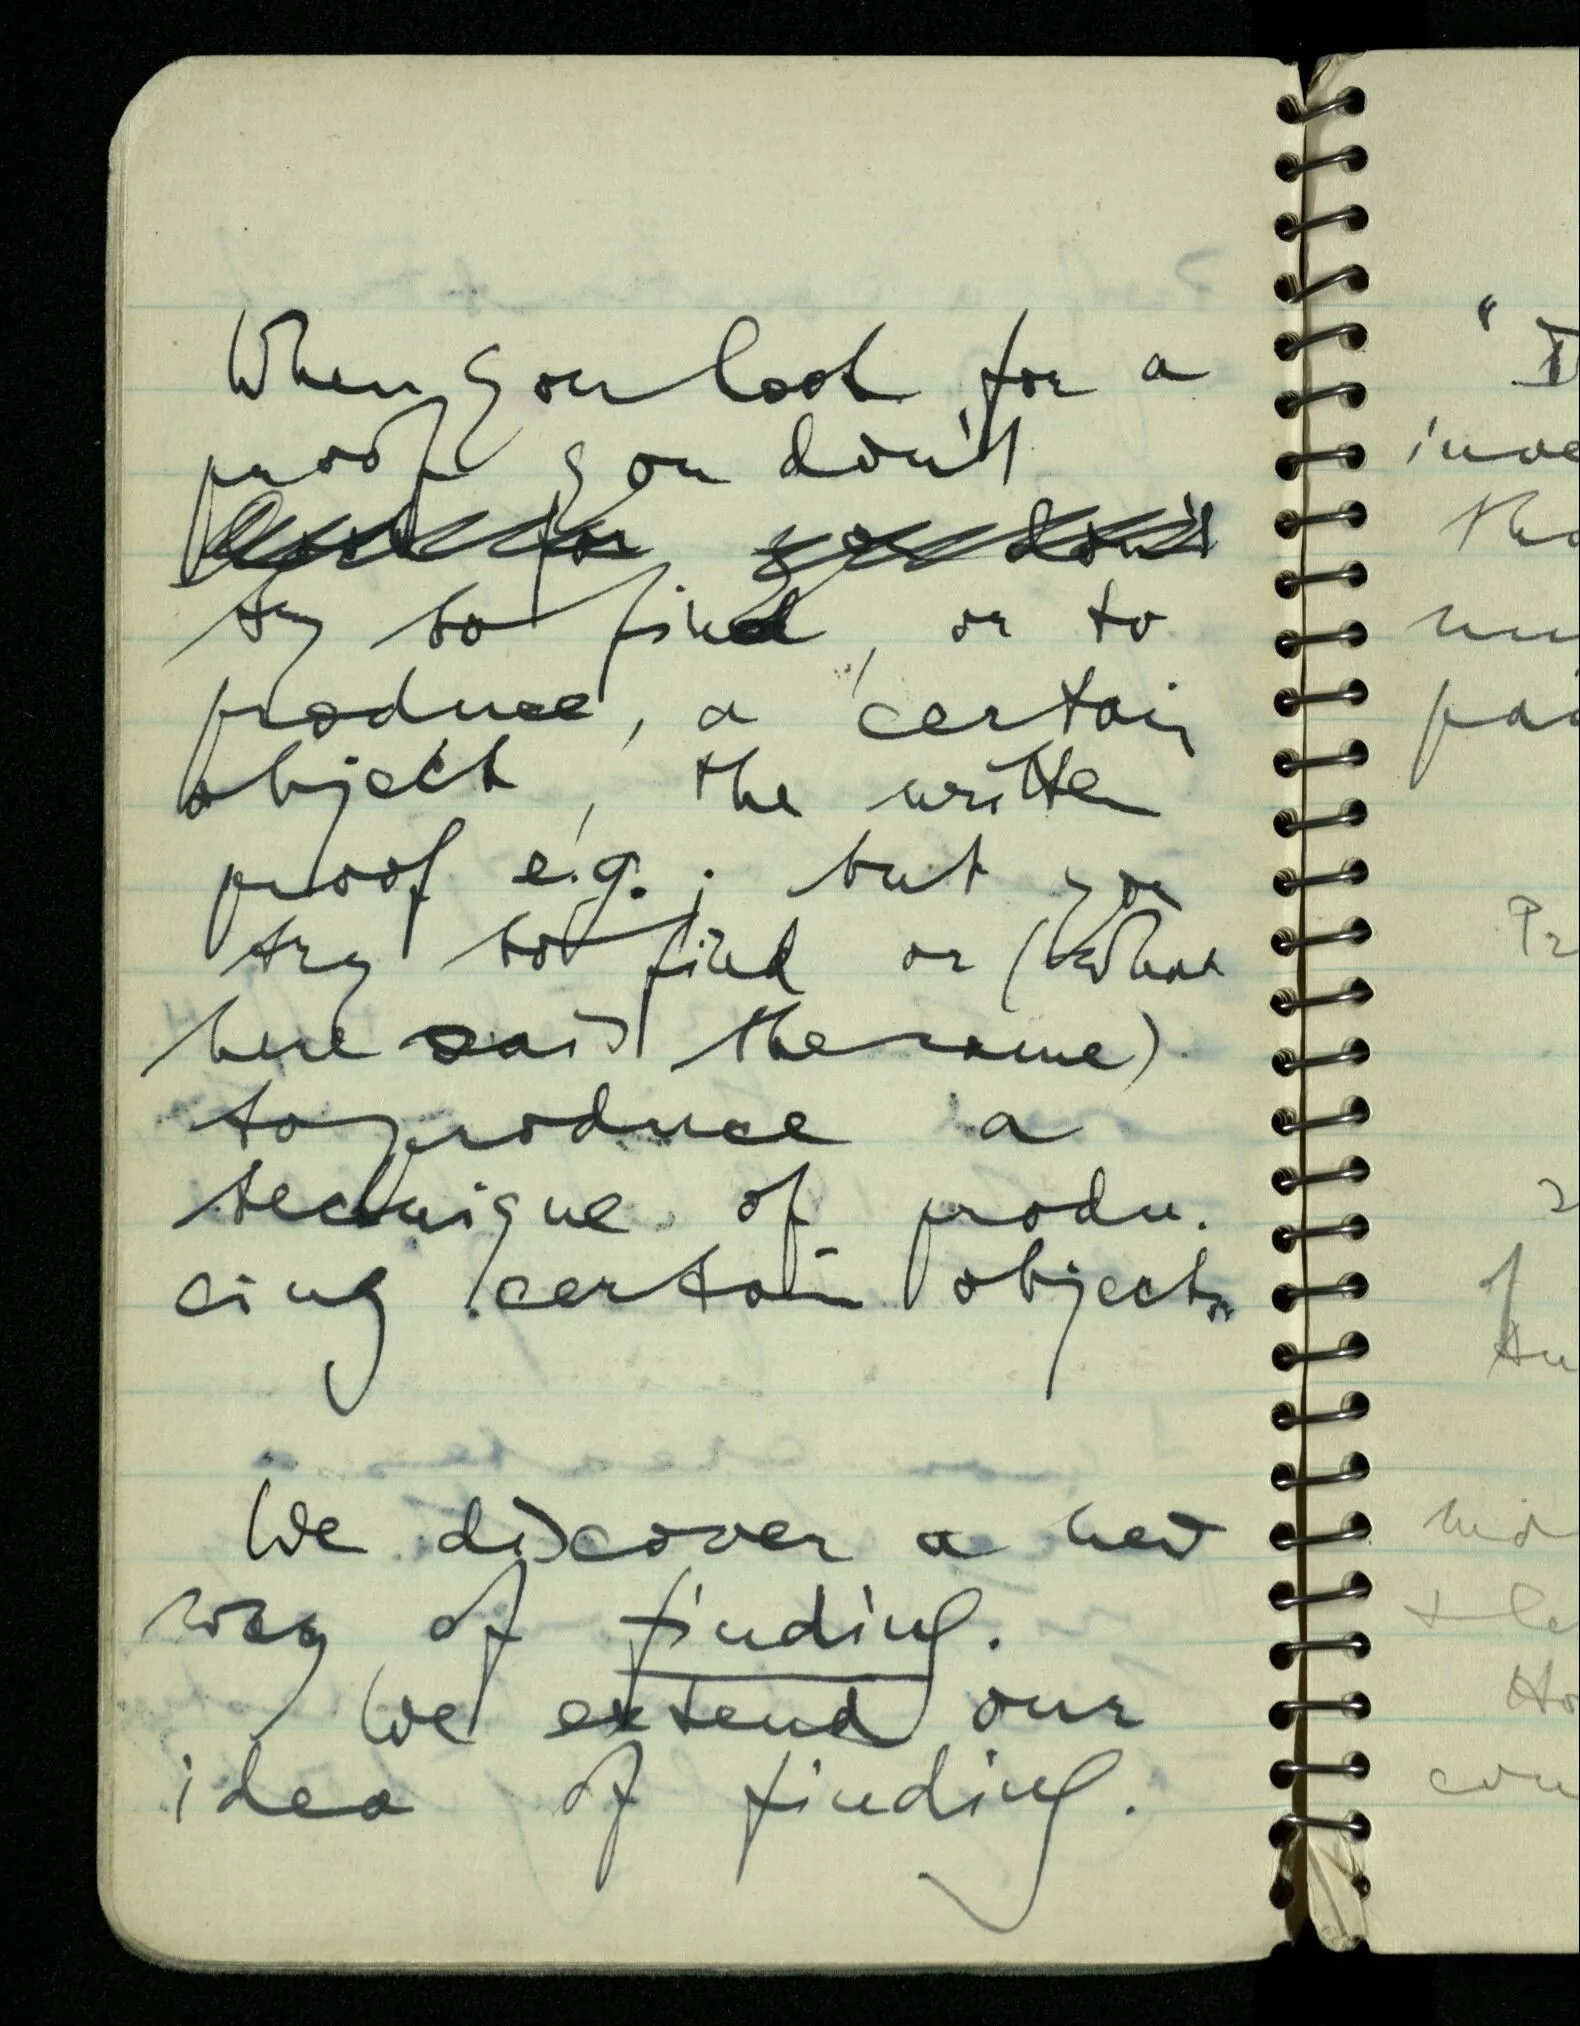 When you look for a
proof you don't
look for you don't
try to find, or to
produce, a certain
object, the written
proof e.g.; but you
try to find or (what
here said the same)
to produce a
technique of produ-
cing certain objects
We discover a new
way of finding.
We extend our
idea of finding.
"I
inve
tha
pai
Pr
2